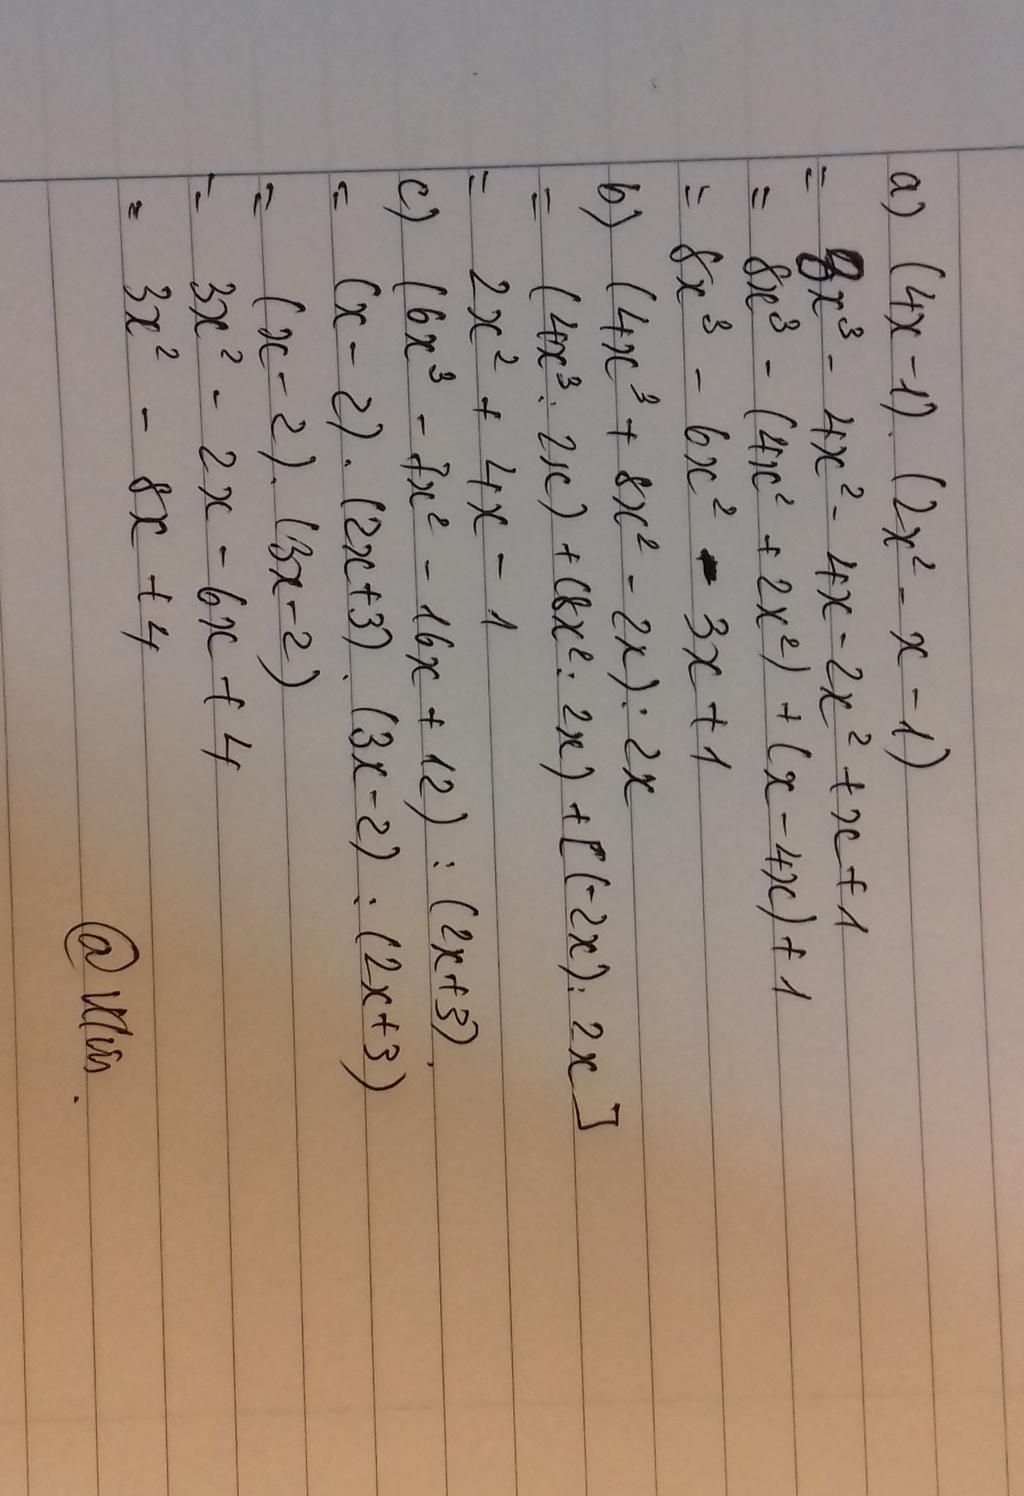 a) (4x - 1). (2x² - x - 1)
= 8x³ - 4x² - 4x - 2x² + x + 1
= 8x³ - (4x² + 2x²) + (x - 4x) + 1
= 8x³ - 6x² - 3x + 1
b) (4x³ + 8x² - 2x) : 2x
= (4x³ : 2x) + (8x² : 2x) + [(-2x) : 2x]
= 2x² + 4x - 1
c) (6x³ - 7x² - 16x + 12) : (2x+3).
= (x - 2). (2x+3). (3x-2) : (2x+3)
= (x - 2). (3x-2)
= 3x² - 2x - 6x + 4
= 3x² - 8x + 4